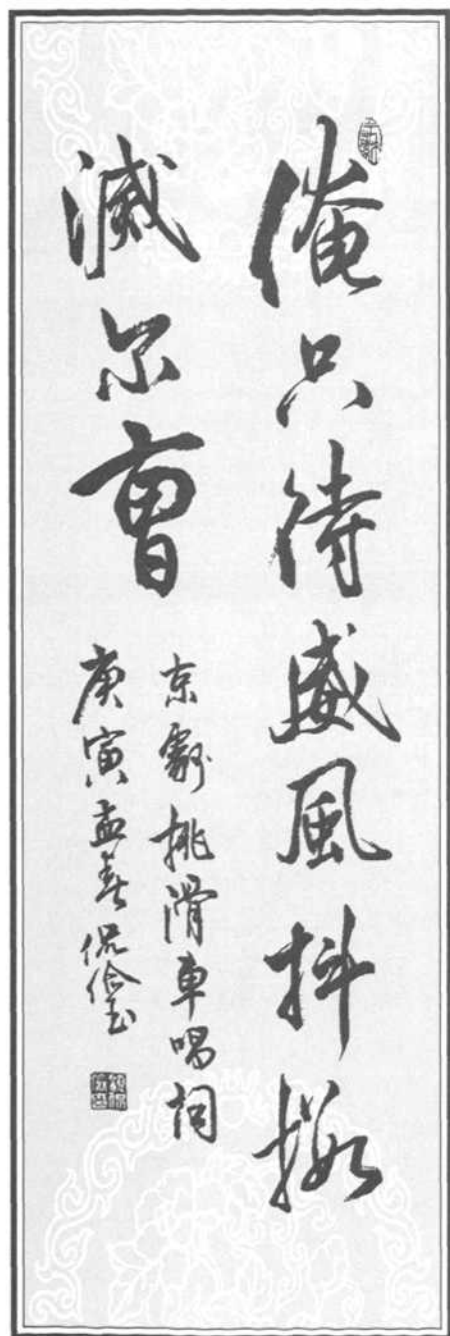 俺只待威風抖擻
滅尔曹
京劇挑滑車唱詞
庚寅孟春侃俭书